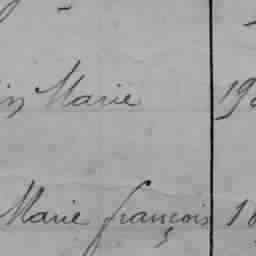 Marie 19
Marie françois 1